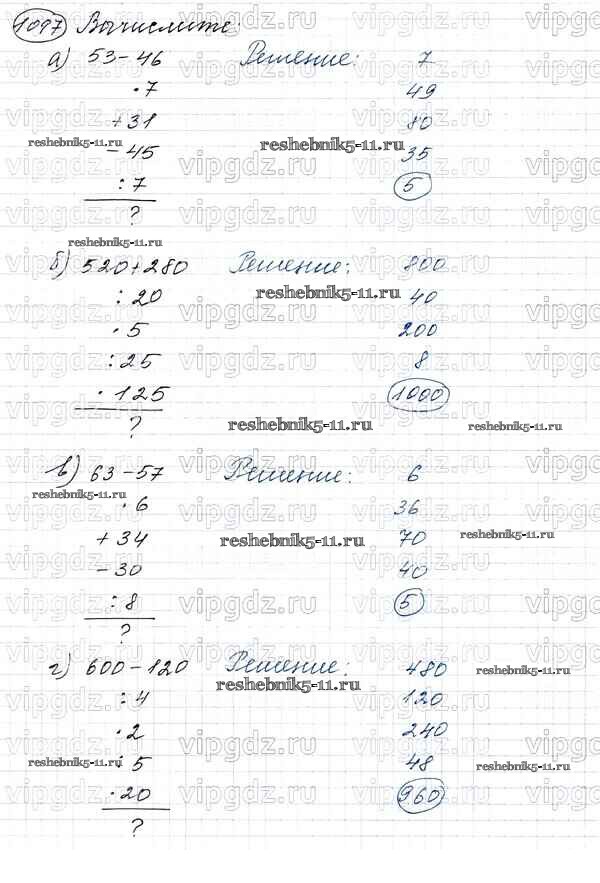 1097 Вычислите:
а) 53 - 46 Решение: 7
· 7 49
+ 31 80
- 45 35
: 7 5
?
б) 520 + 280 Решение: 800
: 20 40
· 5 200
: 25 8
· 125 1000
?
в) 63 - 57 Решение: 6
· 6 36
+ 34 70
- 30 40
: 8 5
?
г) 600 - 120 Решение: 480
: 4 120
· 2 240
: 5 48
· 20 960
?
vipgdz.ru
reshebnik5-11.ru